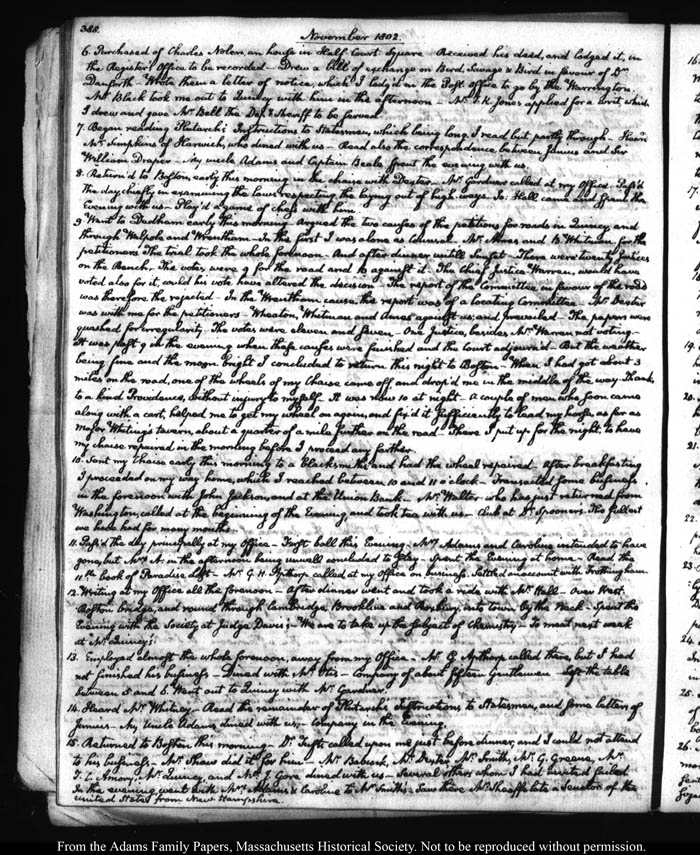 388.
November 1802.
6. Purchased of Charles Nolen, an house in Half-Court Square. Received his deed, and lodged it, in
the Register's Office to be recorded - Drew a bill of exchange on Bird, Savage & Bird in favour of Dr.
Danforth - Wrote them a letter of notice, which I lodg'd in the Post Office to go by the Warrington.
Mr. Black took me out to Quincy with him in the afternoon - Mr. T. K. Jones applied for a writ which
I drew and gave Mr. Bell the Dep: Sheriff to be served.
7. Began reading Plutarch's Instructions to Statesmen, which being long, I read but partly through - Heard
Mr. Simpkins of Harwich, who dined with us - Read also the correspondence between Junius and Sir
William Draper - My uncle Adams and Captain Beale spent the evening with us.
8. Return'd to Boston, early this morning in the chaise with Dexter - Mr. Gardner called at my Office - Pass'd
the day chiefly in examining the laws respecting the laying out of high-ways. Jo: Hall came and spent the
Evening with us - Play'd a game of chess with him.
9. Went to Dedham early this morning - Argued the two causes of the petitions for roads in Quincy, and
through Walpole and Wrentham - In the first I was alone as Counsel. Mr. Ames and B. Whitman, for the
petitioners - The trial took the whole forenoon - And after dinner untill Sunset - There were twenty Justices
on the Bench. The votes were 9 for the road and 10 against it. The Chief Justice Warren, would have
voted also for it, could his vote have altered the decision - The report of the Committee in favour of the road
was therefore rejected - In the Wrentham cause, the report was of a locating Committee. Mr. Dexter
was with me for the petitioners - Wheaton, Whitman and Ames against us; and prevailed - The papers were
quashed for irregularity. The votes were eleven and seven - One Justice, besides Mr. Warren not voting -
It was past 9 in the evening when these causes were finished and the Court adjourn'd - But the weather
being fine and the moon bright I concluded to return this night to Boston - When I had got about 3
miles on the road, one of the wheels of my Chaise came off and drop'd me in the middle of the way - Thanks
to a kind Providence, without injury to myself. It was now 10 at night - A couple of men who soon came
along with a cart, helped me to get my wheel on again, and fix'd it sufficiently to lead my horse as far as
Major Whiting's tavern, about a quarter of a mile further on the road - There I put up for the night, to have
my chaise repaired in the morning before I proceed any farther.
10. Sent my Chaise early this morning to a blacksmith, and had the wheel repaired - After breakfasting
I proceeded on my way home, which I reached between 10 and 11 o'clock - Transacted some business
in the forenoon with John Jackson, and at the Union Bank - Mr. Walter who has just returned from
Washington, called at the beginning of the Evening and took tea with us - Club at Dr. Spooner's. The fullest
we have had for many months.
11. Pass'd the day principally at my Office - First ball this Evening. Mrs. Adams and Caroline intended to have
gone, but Mrs. A. in the afternoon being unwell concluded to stay - Spent the Evening at home - Read the
11th. book of Paradise Lost - Mr. G. H. Apthorp called at my Office on business. Settled an account with Frothingham.
12. Writing at my Office all the forenoon - After dinner went and took a ride with Mr. Hall - Over West
Boston bridge, and round through Cambridge, Brookline and Roxbury, into town by the Neck - Spent the
Evening with the Society at Judge Davis's - We are to take up the subject of Chemistry - To meet next week
at Mr. Quincy's.
13. Employed almost the whole forenoon, away from my Office - Mr. G. Apthorp called there, but I had
not finished his business - Dined with Mr. Otis - Company of about fifteen Gentlemen - Left the table
between 5 and 6. Went out to Quincy with Mr. Gardner.
14. Heard Mr. Whitney - Read the remainder of Plutarch's Instructions to Statesmen, and some letters of
Junius - My Uncle Adams, dined with us - Company in the Evening.
15. Returned to Boston this morning - Dr. Tufts called upon me just before dinner, and I could not attend
to his business - Mr. Shaw did it for him - Mr. Babcock, Mr. Dexter, Mr. Smith, Mr. G. Greene, Mr.
T. C. Amory, Mr. Quincy, and Mr. J. Gore dined with us - Several others whom I had invited failed
In the evening, went with Mrs. Adams & Caroline to Mr. Smith's - Saw there Mr. Sheaffe late a Senator of the
United States from New Hampshire.
From the Adams Family Papers, Massachusetts Historical Society. Not to be reproduced without permission.